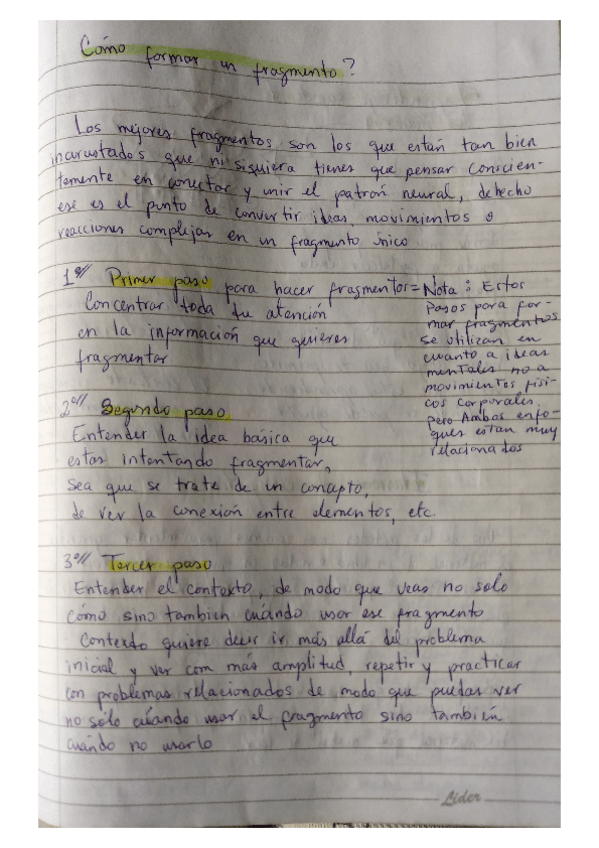 Cómo formar un fragmento?
Los mejores fragmentos son los que están tan bien
incrustados que ni siquiera tienes que pensar conscien-
temente en conectar y unir el patrón neural, dehecho
ese es el punto de convertir ideas, movimientos o
reacciones complejas en un fragmento único
1º// Primer paso para hacer fragmentos =
Concentrar toda tu atención
en la información que quieres
fragmentar
Nota: Estos
pasos para for-
mar fragmentos
se utilizan en
cuanto a ideas
mentales no a
movimientos físi-
cos corporales.
pero Ambos enfo-
ques estan muy
relacionados
2º// Segundo paso
Entender la idea básica que
estas intentando fragmentar,
sea que se trate de un concepto,
de ver la conexión entre elementos, etc.
3º// Tercer paso
Entender el contexto, de modo que veas no solo
cómo sino tambien cuándo usar ese fragmento
Contexto quiere decir ir más allá del problema
inicial y ver com más amplitud, repetir y practicar
con problemas relacionados de modo que puedas ver
no sólo cuándo usar el fragmento sino también
cuándo no usarlo
Líder